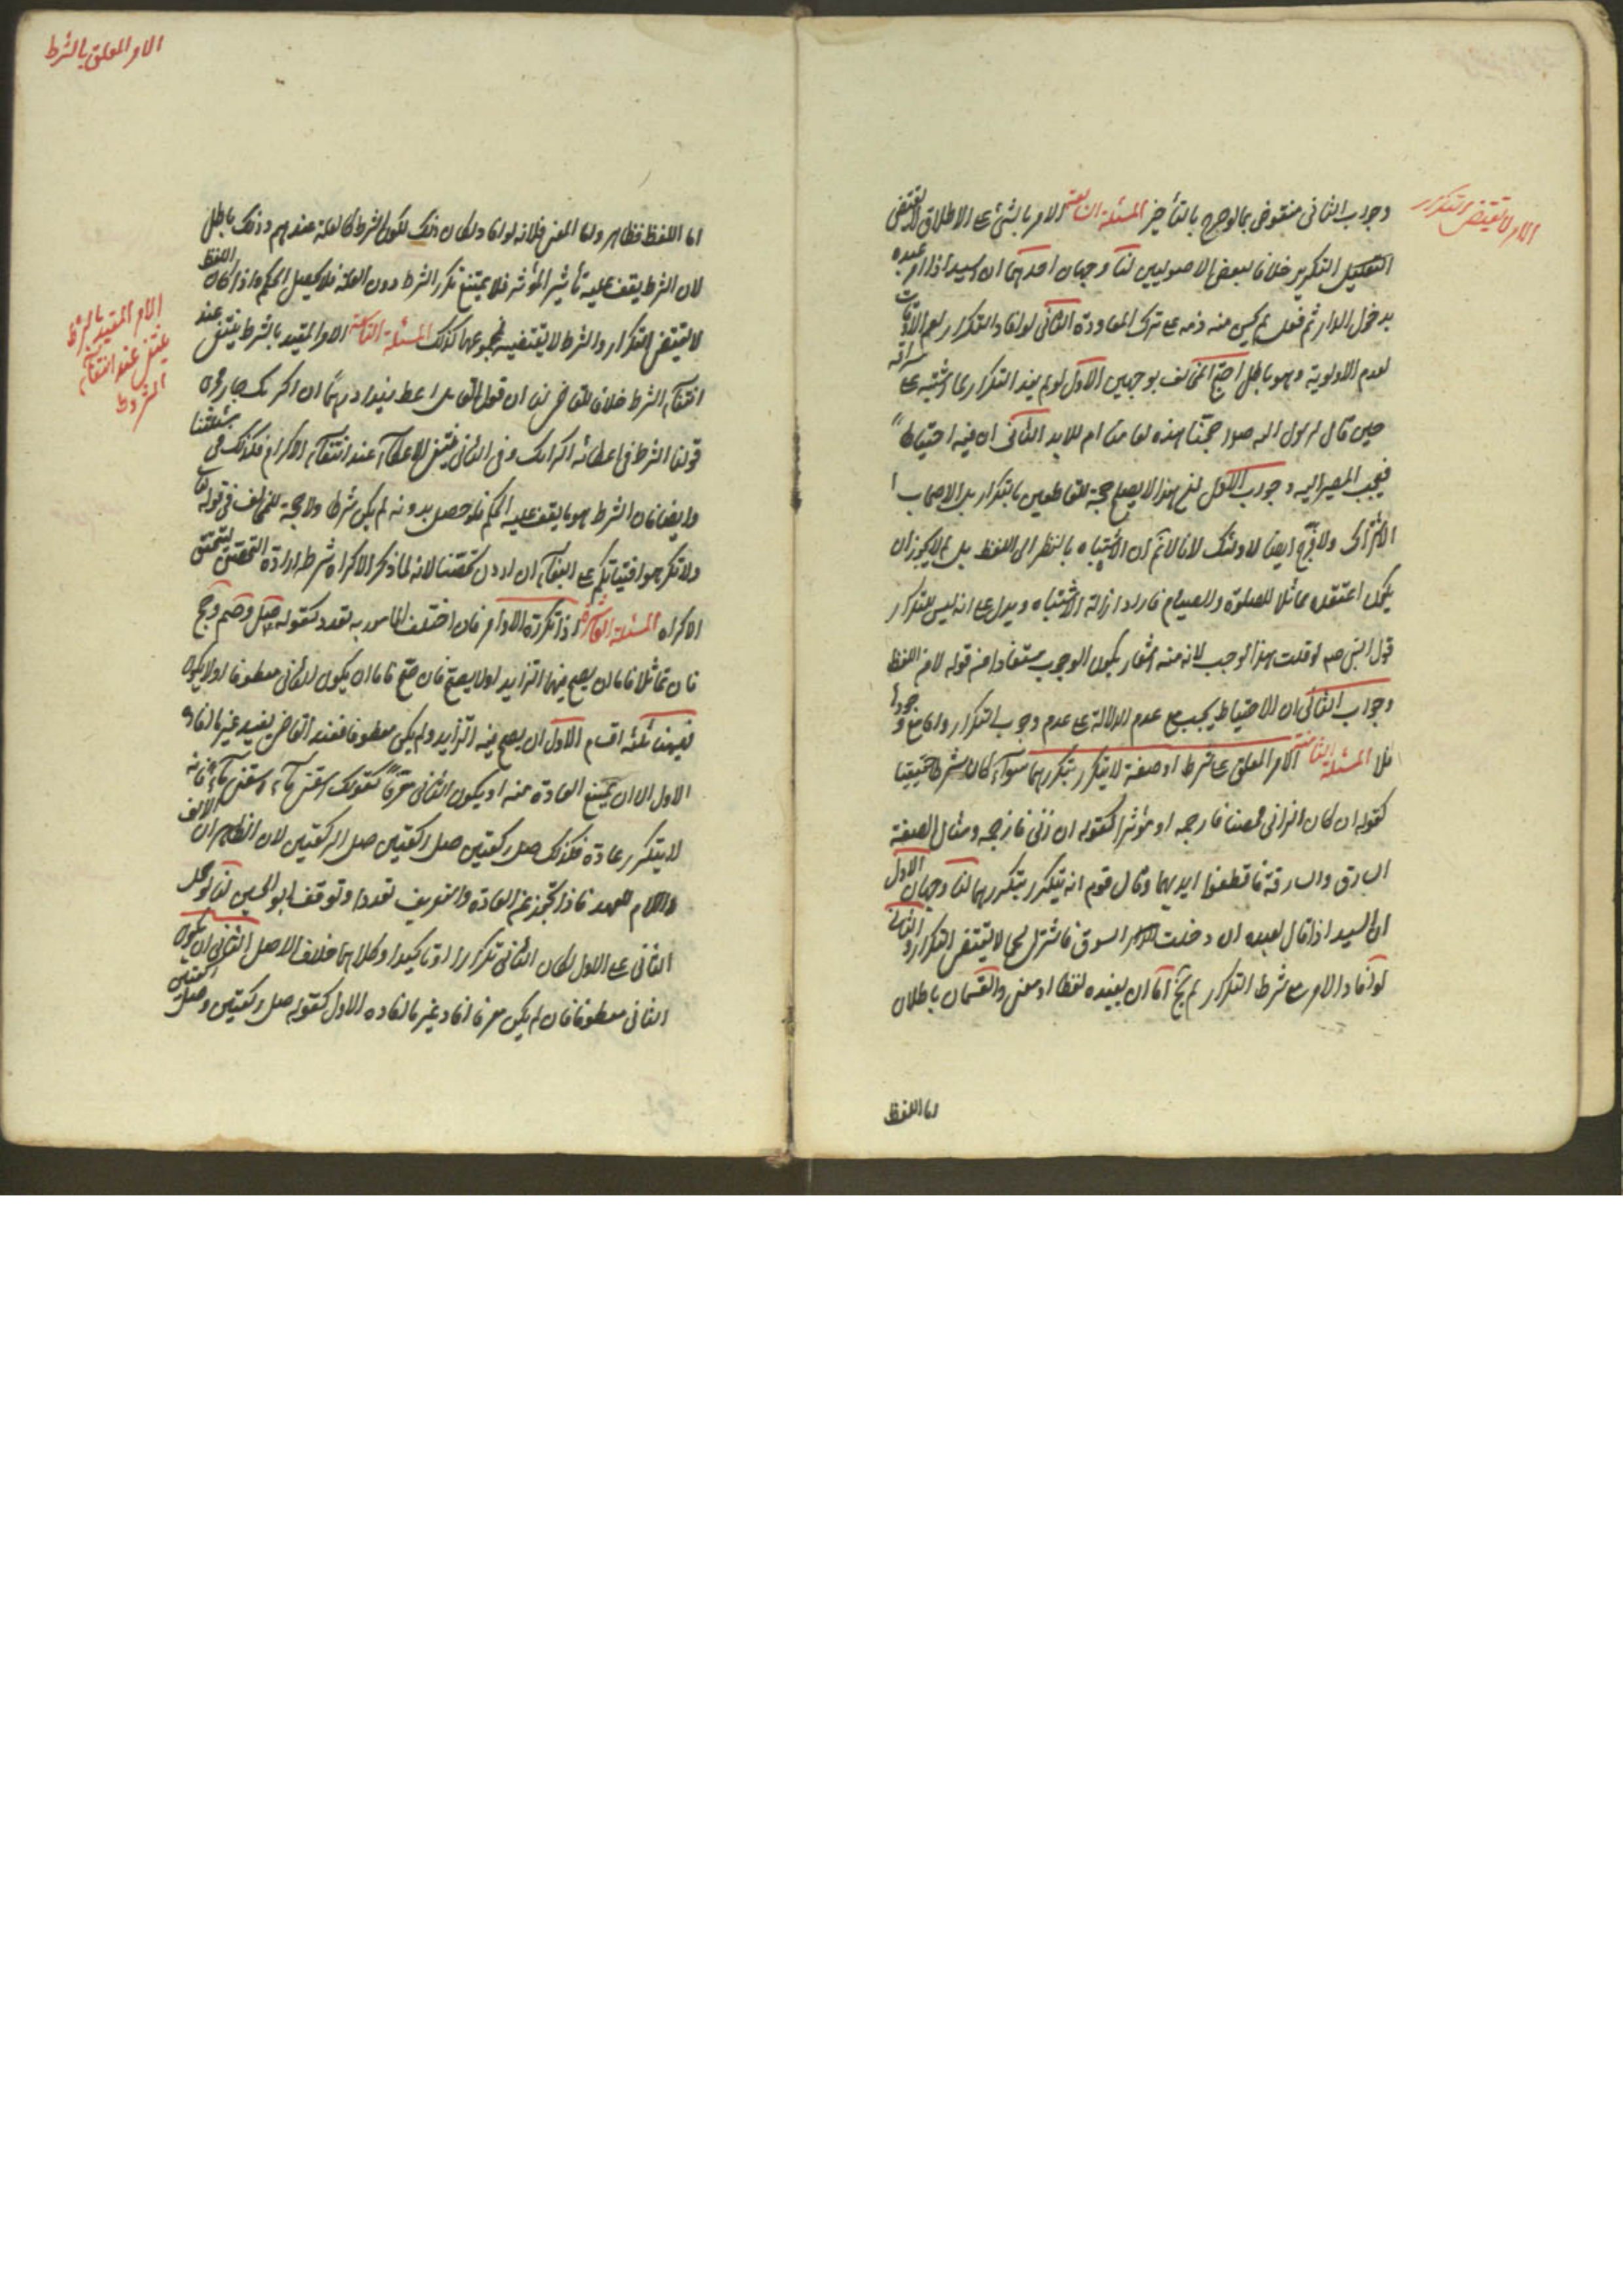 الامر لا يقتضي التكرار
وجواب الثاني منقوض بما لو صرح بالتأخير المسئلة السابعة الامر بالشئ على الاطلاق لا يقتضي
التكرير خلافا لبعض الاصوليين لنا وجهان احدهما ان السيد اذا امر عبده
بدخول الدار ثم فعل لم يحسن منه ذمه على ترك المعاودة الثاني لو افاد التكرار لعم الاوقات
لعدم الاولوية وهو باطل احتج المخالف بوجهين الاول لو لم يفد التكرار لما اشتبه على سراقة
حين قال لرسول الله ص حجتنا هذه لعامنا ام للابد الثاني ان فيه احتياطا
فيجب المصير اليه وجواب الاول هذا لا يصلح حجة للقاطعين بالتكرار بل لاصحاب
الاشتراك ولا حجة ايضا لاولئك لانا لا نم ان الاشتباه بالنظر الى اللفظ بل لم لا يجوز ان
يكون اعتقده مماثلا للصلوة والصيام فاراد ازالة الاشتباه ويدل على انه ليس للتكرار
قول النبي صم لو قلت هذا لوجب لانه منه اشعار بكون الوجوب مستفادا من قوله لا من اللفظ
وجواب الثاني ان الاحتياط يجب مع عدم الدلالة على عدم وجوب التكرار واما مع وجودها
فلا المسئلة الثامنة الامر المعلق على شرط او صفة لا يتكرر بتكررهما سواء كان الشرط حقيقيا
كقوله ان كان الزاني محصنا فارجمه او مؤثرا كقوله ان زنى فارجمه ومثال الصفة
السارق والسارقة فاقطعوا ايديهما وقال قوم انه يتكرر بتكررهما لنا وجهان الاول
ان السيد اذا قال لعبده ان دخلت السوق فاشتر لحما لا يقتضي التكرار والثاني
لو افاد الامر مع شرط التكرار لم يخ اما ان يفيده لفظا او معنى والقسمان باطلان
اما اللفظ
الامر المعلق بالشرط
اما اللفظ فظاهر واما المعنى فلانه لو افاد لكان ذلك لكون الشرط كالعلة عندهم وذلك باطل
لان الشرط يقف عليه تأثير المؤثر فلا يمتنع تكرر الشرط دون العلة فلا يحصل الحكم واذا كان اللفظ
لا يقتضي التكرار والشرط لا يقتضيه فمجموعهما كذلك المسئلة التاسعة الامر المقيد بالشرط ينتفي عند
انتفاء الشرط خلافا للقاضي لنا ان قول القائل اعط زيدا درهما ان اكرمك جار مجرى
قولنا الشرط في اعطائه اكرامك وفي الثاني ينتفي الاعطاء عند انتفاء الاكرام فكذلك في مسئلتنا
وايضا فان الشرط هو ما يقف عليه الحكم فلو حصل بدونه لم يكن شرطا ولا حجة للمخالف في قوله تعا
ولا تكرهوا فتياتكم على البغاء ان اردن تحصنا لانه لما ذكر الاكراه شرط ارادة التحصن ليتحقق
الاكراه المسئلة العاشرة اذا تكررت الاوامر فان اختلف المامور به تعدد كقوله صل وصم وحج
فان تماثلا فاما ان يصح فيهما التزايد او لا يصح فان صح فاما ان يكون الثاني معطوفا او لا يكون
فههنا ثلثة اقسام الاول ان يصح فيه التزايد ولم يكن معطوفا فعند القاضي يفيد غير ما افاده
الاول الا ان يمنع العادة منه او يكون الثاني معرفا كقولك اسقني ماء اسقني ماء فانه
لا يتكرر عادة فكذلك صل ركعتين صل ركعتين صل الركعتين لان الظاهر ان الالف
واللام للعهد فاذا تجرد عن العادة والتعريف تعددا وتوقف ابو الحسين لنا لو حمل
الثاني على الاول لكان الثاني تكرارا او تاكيدا وكلاهما خلاف الاصل الثاني ان يكون
الثاني معطوفا فان لم يكن معرفا افاد غير ما افاده الاول كقوله صل ركعتين وصل ركعتين
الامر المقيد بالشرط
ينتفي عند انتفاء
الشرط